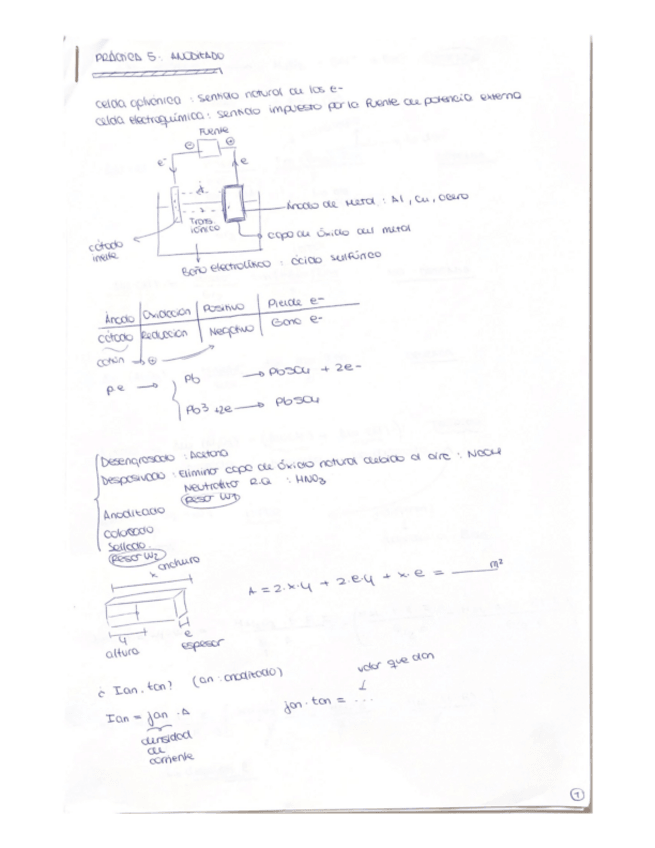 PRÁCTICA 5: ANODITADO
celda galvánica : sentido natural de los e-
celda electroquímica : sentido impuesto por la fuente de potencia externa
Fuente
⊖ ⊕
e- e
Trans. iónico
Ánodo de metal : Al, Cu, acero
capa de óxido del metal
cátodo inerte
Baño electrolítico : ácido sulfúrico
Ánodo Oxidación Positivo Pierde e-
cátodo Reducción Negativo Gana e-
catión → ⊕
p.e → Pb → PbSO4 + 2e-
Pb3 +2e → PbSO4
Desengrasado : Acetona
Despasivado : Elimino capa de óxido natural debido al aire : NaOH
Neutralizo R.Q : HNO3
Pesar W1
Anoditado
Coloreado
Sellado
Pesar W2
anchura
x
y
altura
e
espesor
A = 2·x·y + 2·e·y + x·e = ______ m²
¿ Ian, tan? (an : anoditado)
valor que dan
↓
Ian = jan · A
jan · tan = ...
densidad
de
corriente
1